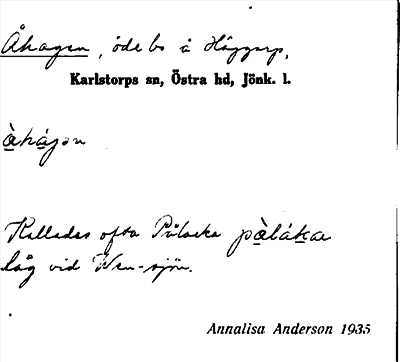 Åhagen, öde bs å Häggarp,
Karlstorps sn, Östra hd, Jönk. l.
àhágən
Kallades ofta Pålacka pàláka
låg vid Wen-sjön.
Annalisa Anderson 1935